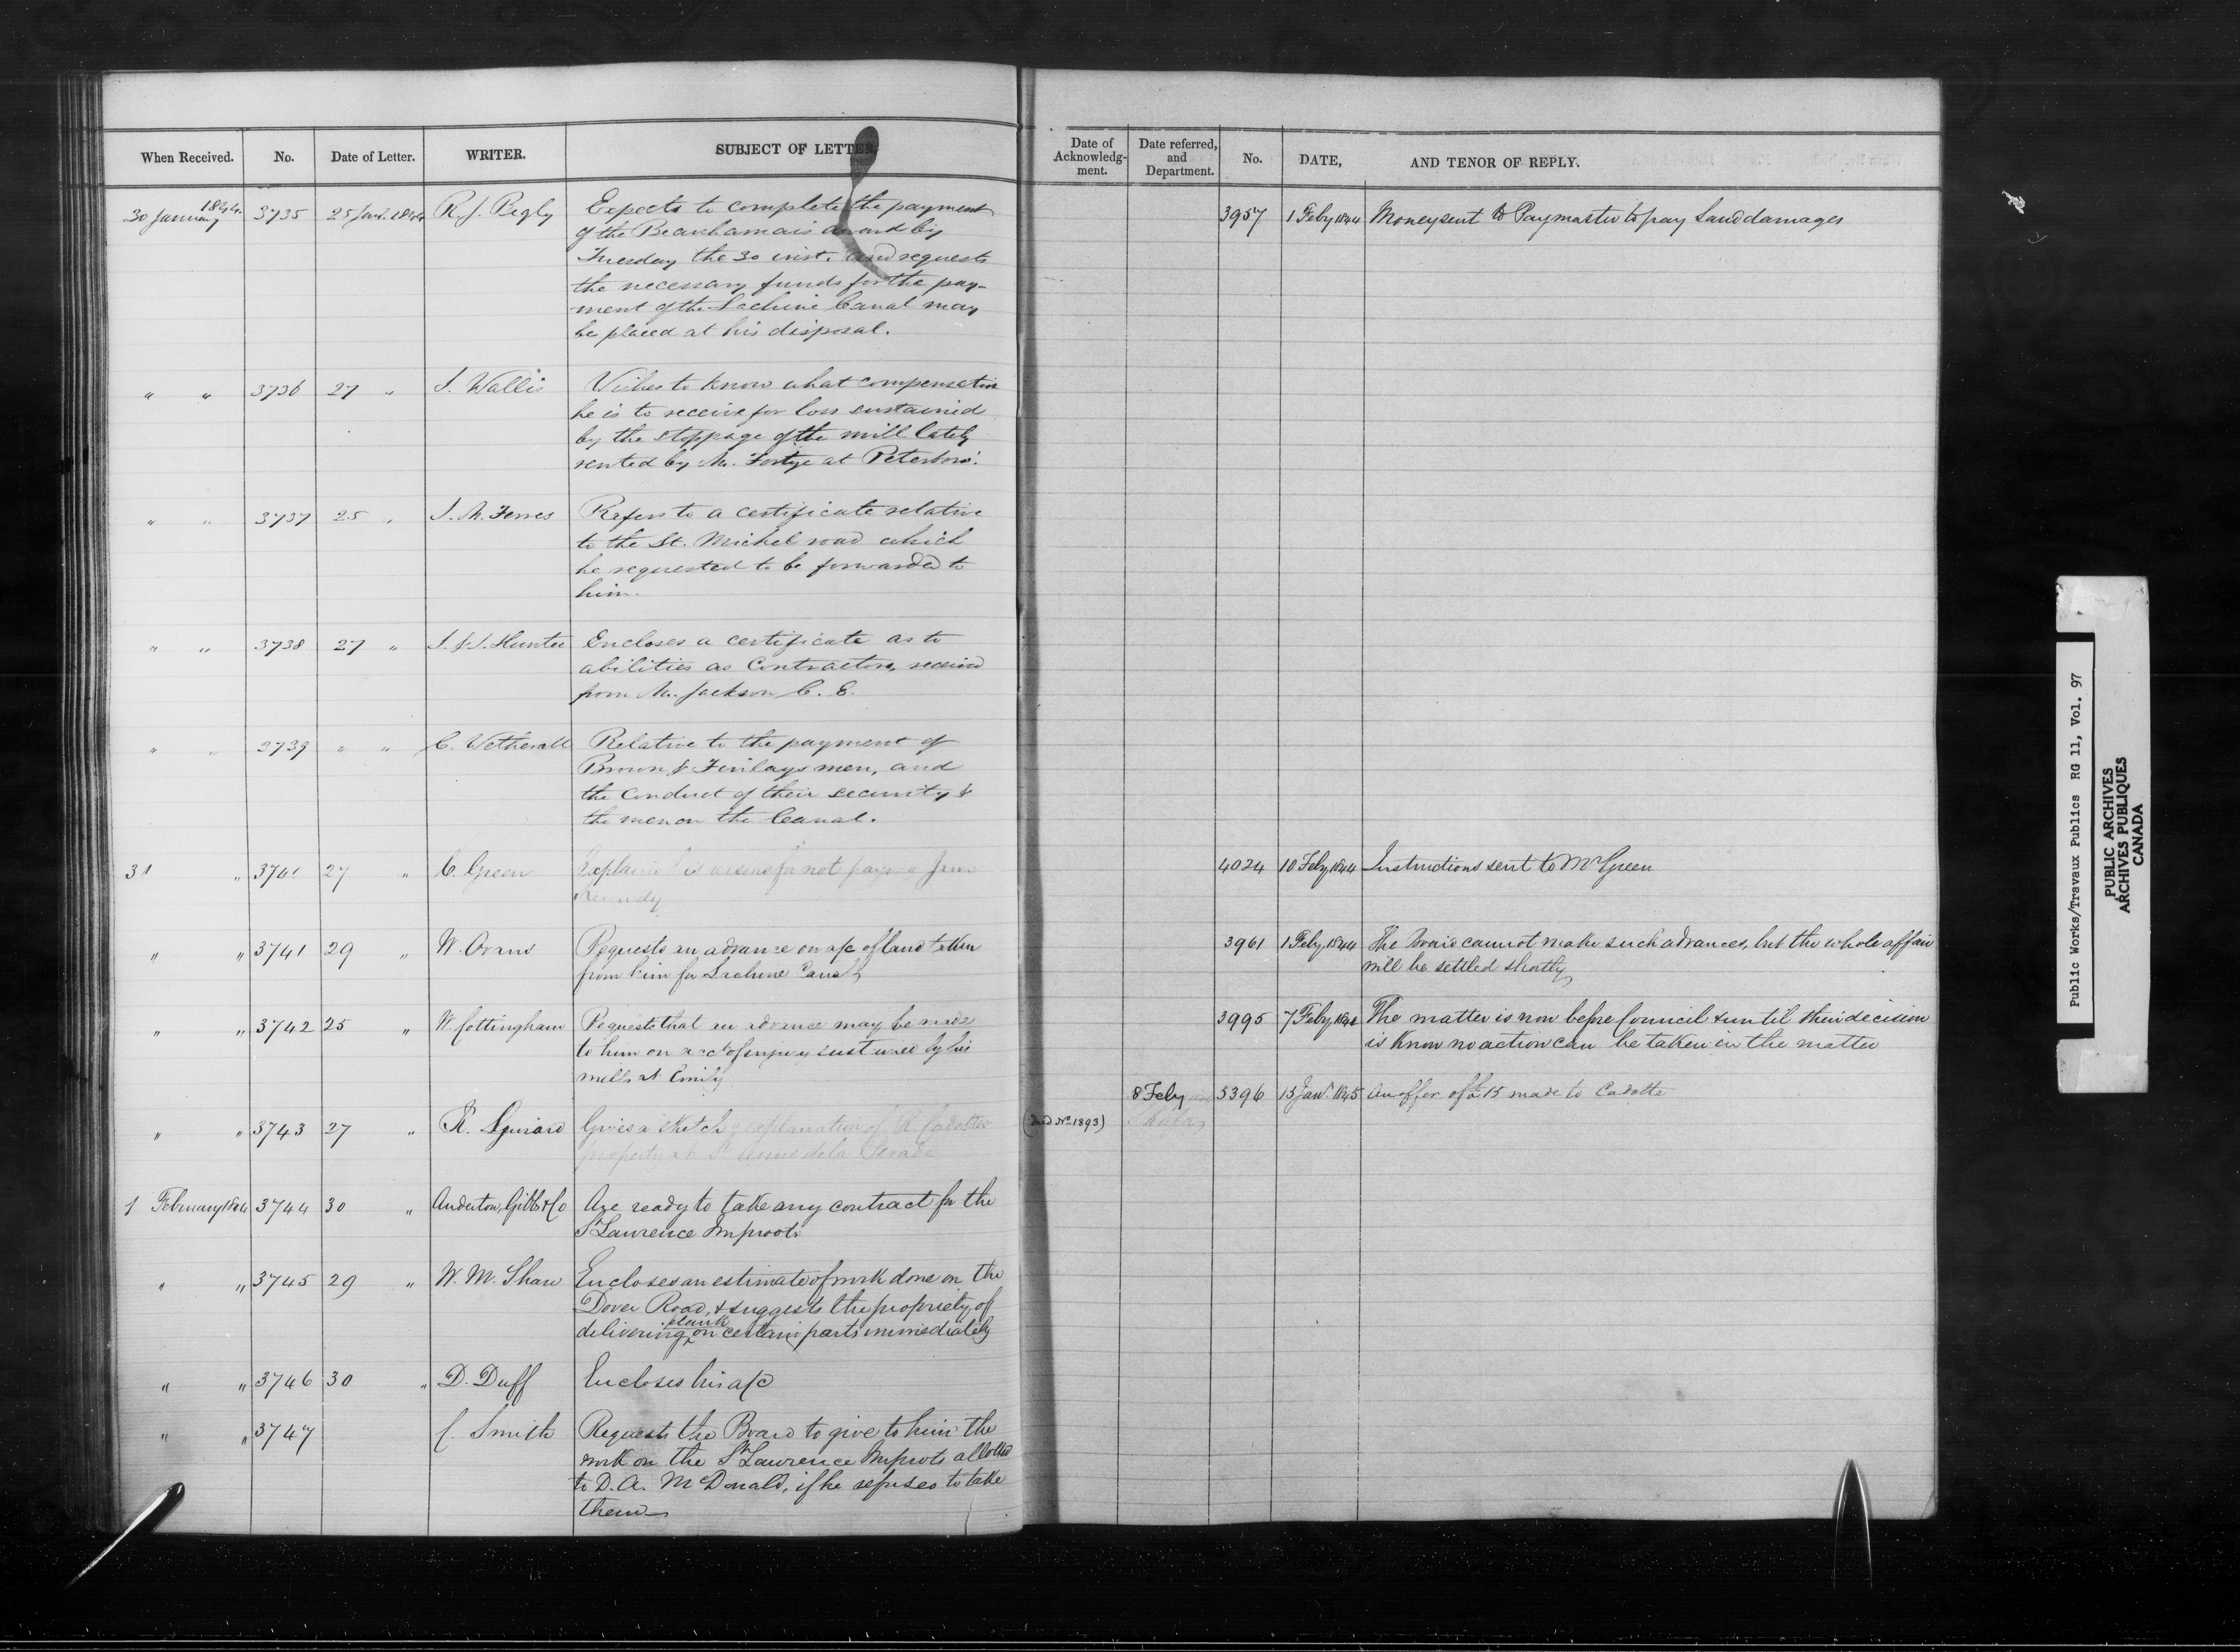 When Received. No. Date of Letter. WRITER. SUBJECT OF LETTER.
30 January 1844. 3735 25 Jany. 1844 R. J. Begly Expects to complete the payment
of the Beauharnais award by
Tuesday the 30 inst. and requests
the necessary funds for the pay-
ment of the Lachine Canal may
be placed at his disposal.
" " 3736 27 " J. Wallis Wishes to know what compensation
he is to receive for loss sustained
by the stoppage of the mill lately
rented by Mr. Fortye at Peterboro'.
" " 3737 25 " J. M. Ferres Refers to a certificate relative
to the St. Michel road which
he requested to be forwarded to
him.
" " 3738 27 " J. & J. Hunter Encloses a certificate as to
abilities as Contractors, received
from Mr. Jackson C. E.
" " 2739 " " C. Wetherall Relative to the payment of
Brown & Finlays men, and
the conduct of their security &
the men on the Canal.
31 " 3740 27 " C. Green Explains his reasons for not paying
Kennedy
" " 3741 29 " W. Evans Requests an advance on a/c of land taken
from him for Lachine Canal
" " 3742 25 " W. Cottingham Requests that an advance may be made
to him on acct of injury sustained by his
mills at Emily
" " 3743 27 " R. Gives a sketch & explanation of R. Cadottes
property at St Annes de la Perade
1 February 1844 3744 30 " Anderton, Gibb & Co Are ready to take any contract for the
St Lawrence Improvts
" " 3745 29 " W. M. Shaw Encloses an estimate of work done on the
Dover Road, & suggests the propriety of
delivering plank on certain parts immediately
" " 3746 30 " D. Duff Encloses his a/c
" " 3747 C. Smith Requests the Board to give to him the
work on the St Lawrence Improts allotted
to D. A. McDonald, if he refuses to take
them
Date of Acknowledg-ment. Date referred, and Department. No. DATE, AND TENOR OF REPLY.
3957 1 Feby 1844 Money sent to Paymaster to pay Land damages
4024 10 Feby 1844 Instructions sent to Mr Green
3961 1 Feby 1844 The Board cannot make such advances, but the whole affair
will be settled shortly
3995 7 Feby 1844 The matter is now before Council & until their decision
is know no action can be taken in the matter
8 Feby 5396 15 Jany 1845 An offer of £15 made to Cadotte
No 1893)
Public Works/Travaux Publics RG 11, Vol. 97
PUBLIC ARCHIVES
ARCHIVES PUBLIQUES
CANADA